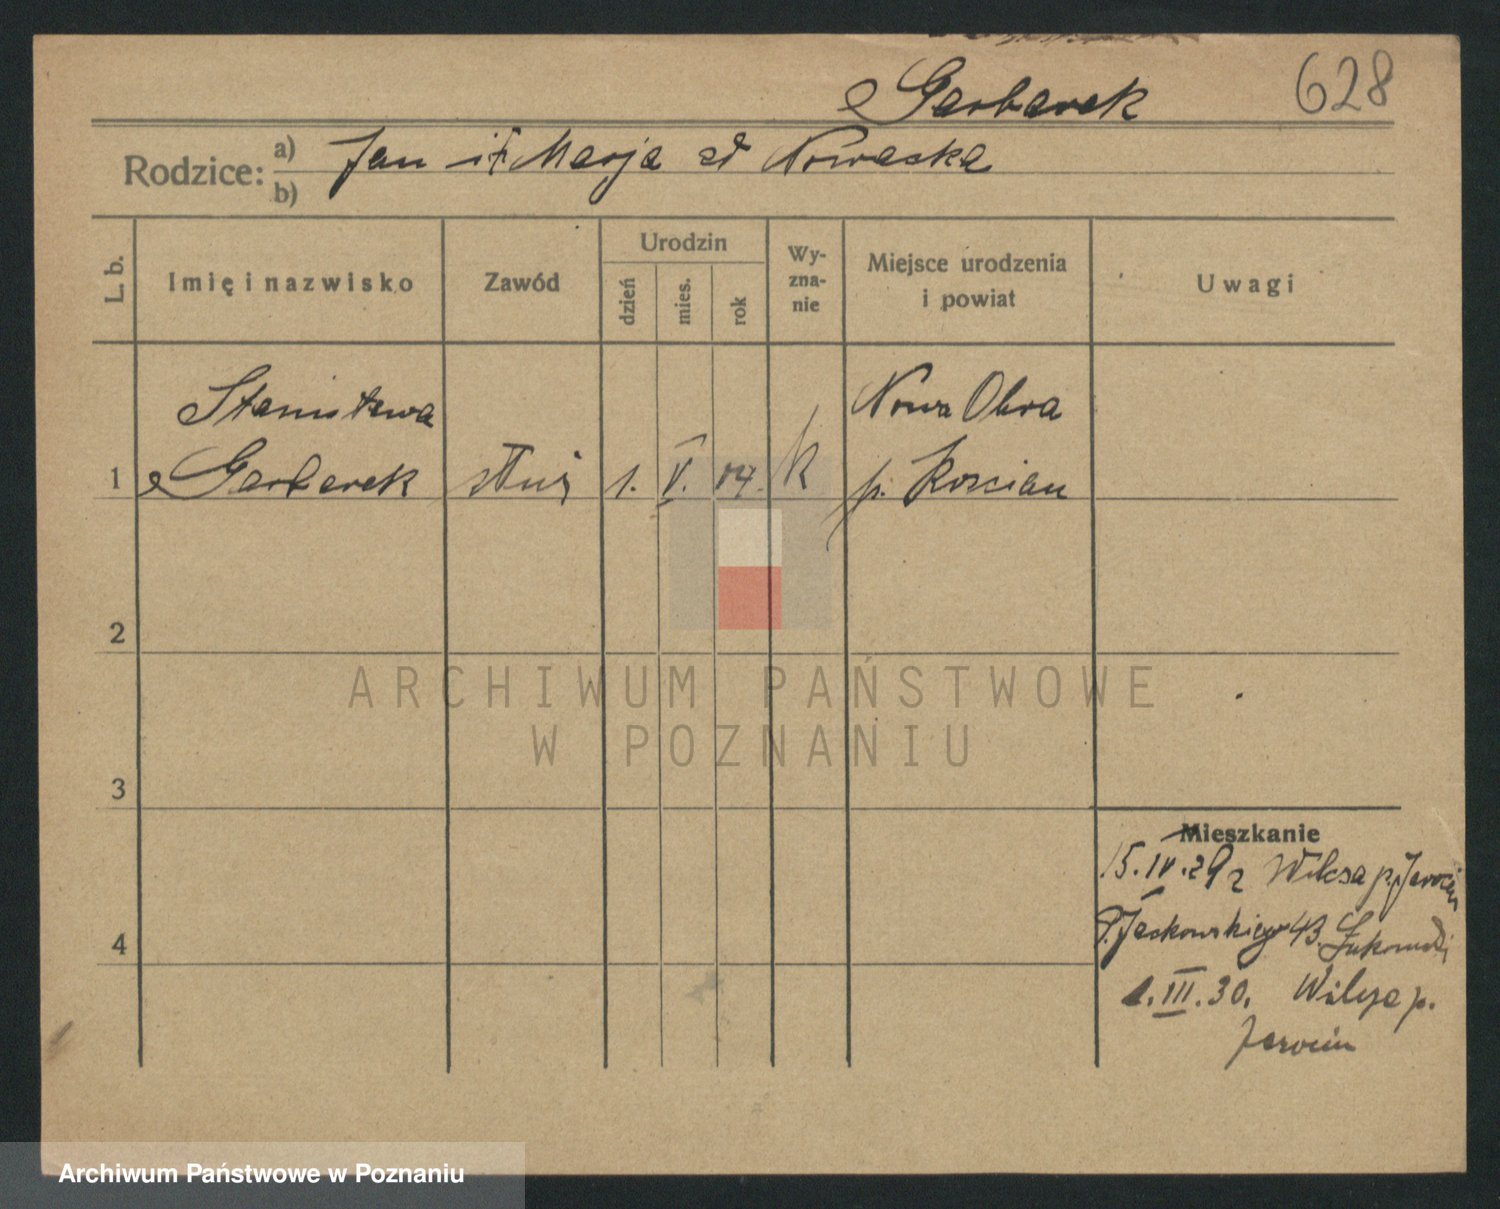 Garbarek
628
Rodzice: a) Jan i † Marja zd Nowacka
b)
L. b.
Imię i nazwisko
Zawód
Urodzin
dzień
mies.
rok
Wy-
zna-
nie
Miejsce urodzenia
i powiat
Uwagi
Stanisława
Nowa Obra
1 Garbarek służ 1. V. 04. k p. Kościan
2
3
4
ARCHIWUM PAŃSTWOWE
W POZNANIU
Mieszkanie
15.IV.29 z Wilcza p. Jarocin
P. Jackowskiego 43.
1.III.30. Wilcza p.
Jarocin
Archiwum Państwowe w Poznaniu